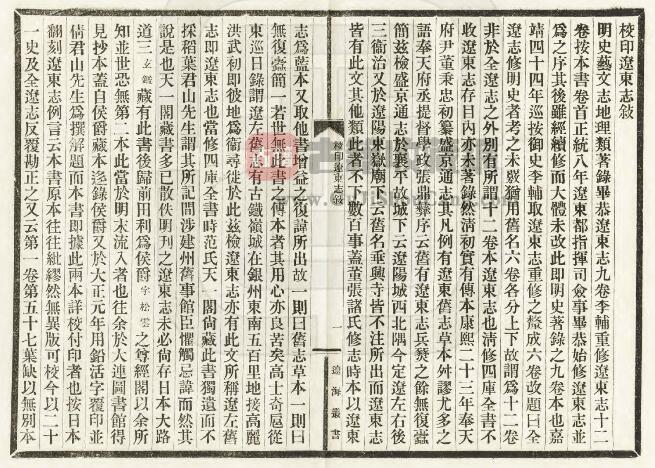 校印遼東志敘
明史藝文志地理類著錄畢恭遼東志九卷李輔重修遼東志十二
卷按本書卷首正統八年遼東都指揮司僉事畢恭始修遼東志並
為之序其後雖經續修而大體未改此即明史著錄之九卷本也嘉
靖四十四年巡按御史李輔取遼東志重修之釐成六卷改題曰全
遼志修明史者考之未覈猶用舊名六卷各分上下故謂為十二卷
非於全遼志之外別有所謂十二卷本遼東志也清修四庫全書不
收遼東志存目內亦未著錄然清初實有傳本康熙二十三年奉天
府尹董秉忠初纂盛京通志其凡例有遼東舊志草本舛謬尤多之
語奉天府丞提督學政張鼎彝序云舊有遼東志兵燹之餘無復蠹
簡茲檢盛京通志於襄平故城下云遼陽城西北隅今定遼左右後
三衞治又於遼陽東嶽廟下云舊名垂興寺皆不注所出而遼東志
皆有此文其他類此者不下數百事蓋董張諸氏修志時本以遼東
校印遼東志敘
一
遼海叢書
志為藍本又取他書增益之復諱所出故一則曰舊志草本一則曰
無復蠹簡一若世無此書之傳本者其用心亦良苦矣高士奇扈從
東巡日錄謂遼左舊志有古鐵嶺城在銀州東南五百里地接高麗
洪武初即彼地為衞尋徙於此茲檢遼東志亦有此文所稱遼左舊
志即遼東志也當修四庫全書時范氏天一閣尙藏此書獨遺而不
採稻葉君山先生謂其所記間涉建州舊事館臣懼觸忌諱而然其
說是也天一閣藏書多已散佚明刊之遼東志未必尙存日本大路
道三玄鍛藏有此書後歸前田利為侯爵字松雲之尊經閣以余所
知並世恐無第二本此當於明末流入者也往余於大連圖書館得
見抄本蓋自侯爵藏本迻錄侯爵又於大正元年用鉛活字覆印並
倩君山先生為撰解題而本書即據此兩本詳校付印者也按日本
翻刻遼東志例言云本書原本往往紕繆然無異版可校今以二十
一史及全遼志反覆勘正之又云第一卷第五十七葉缺以無別本